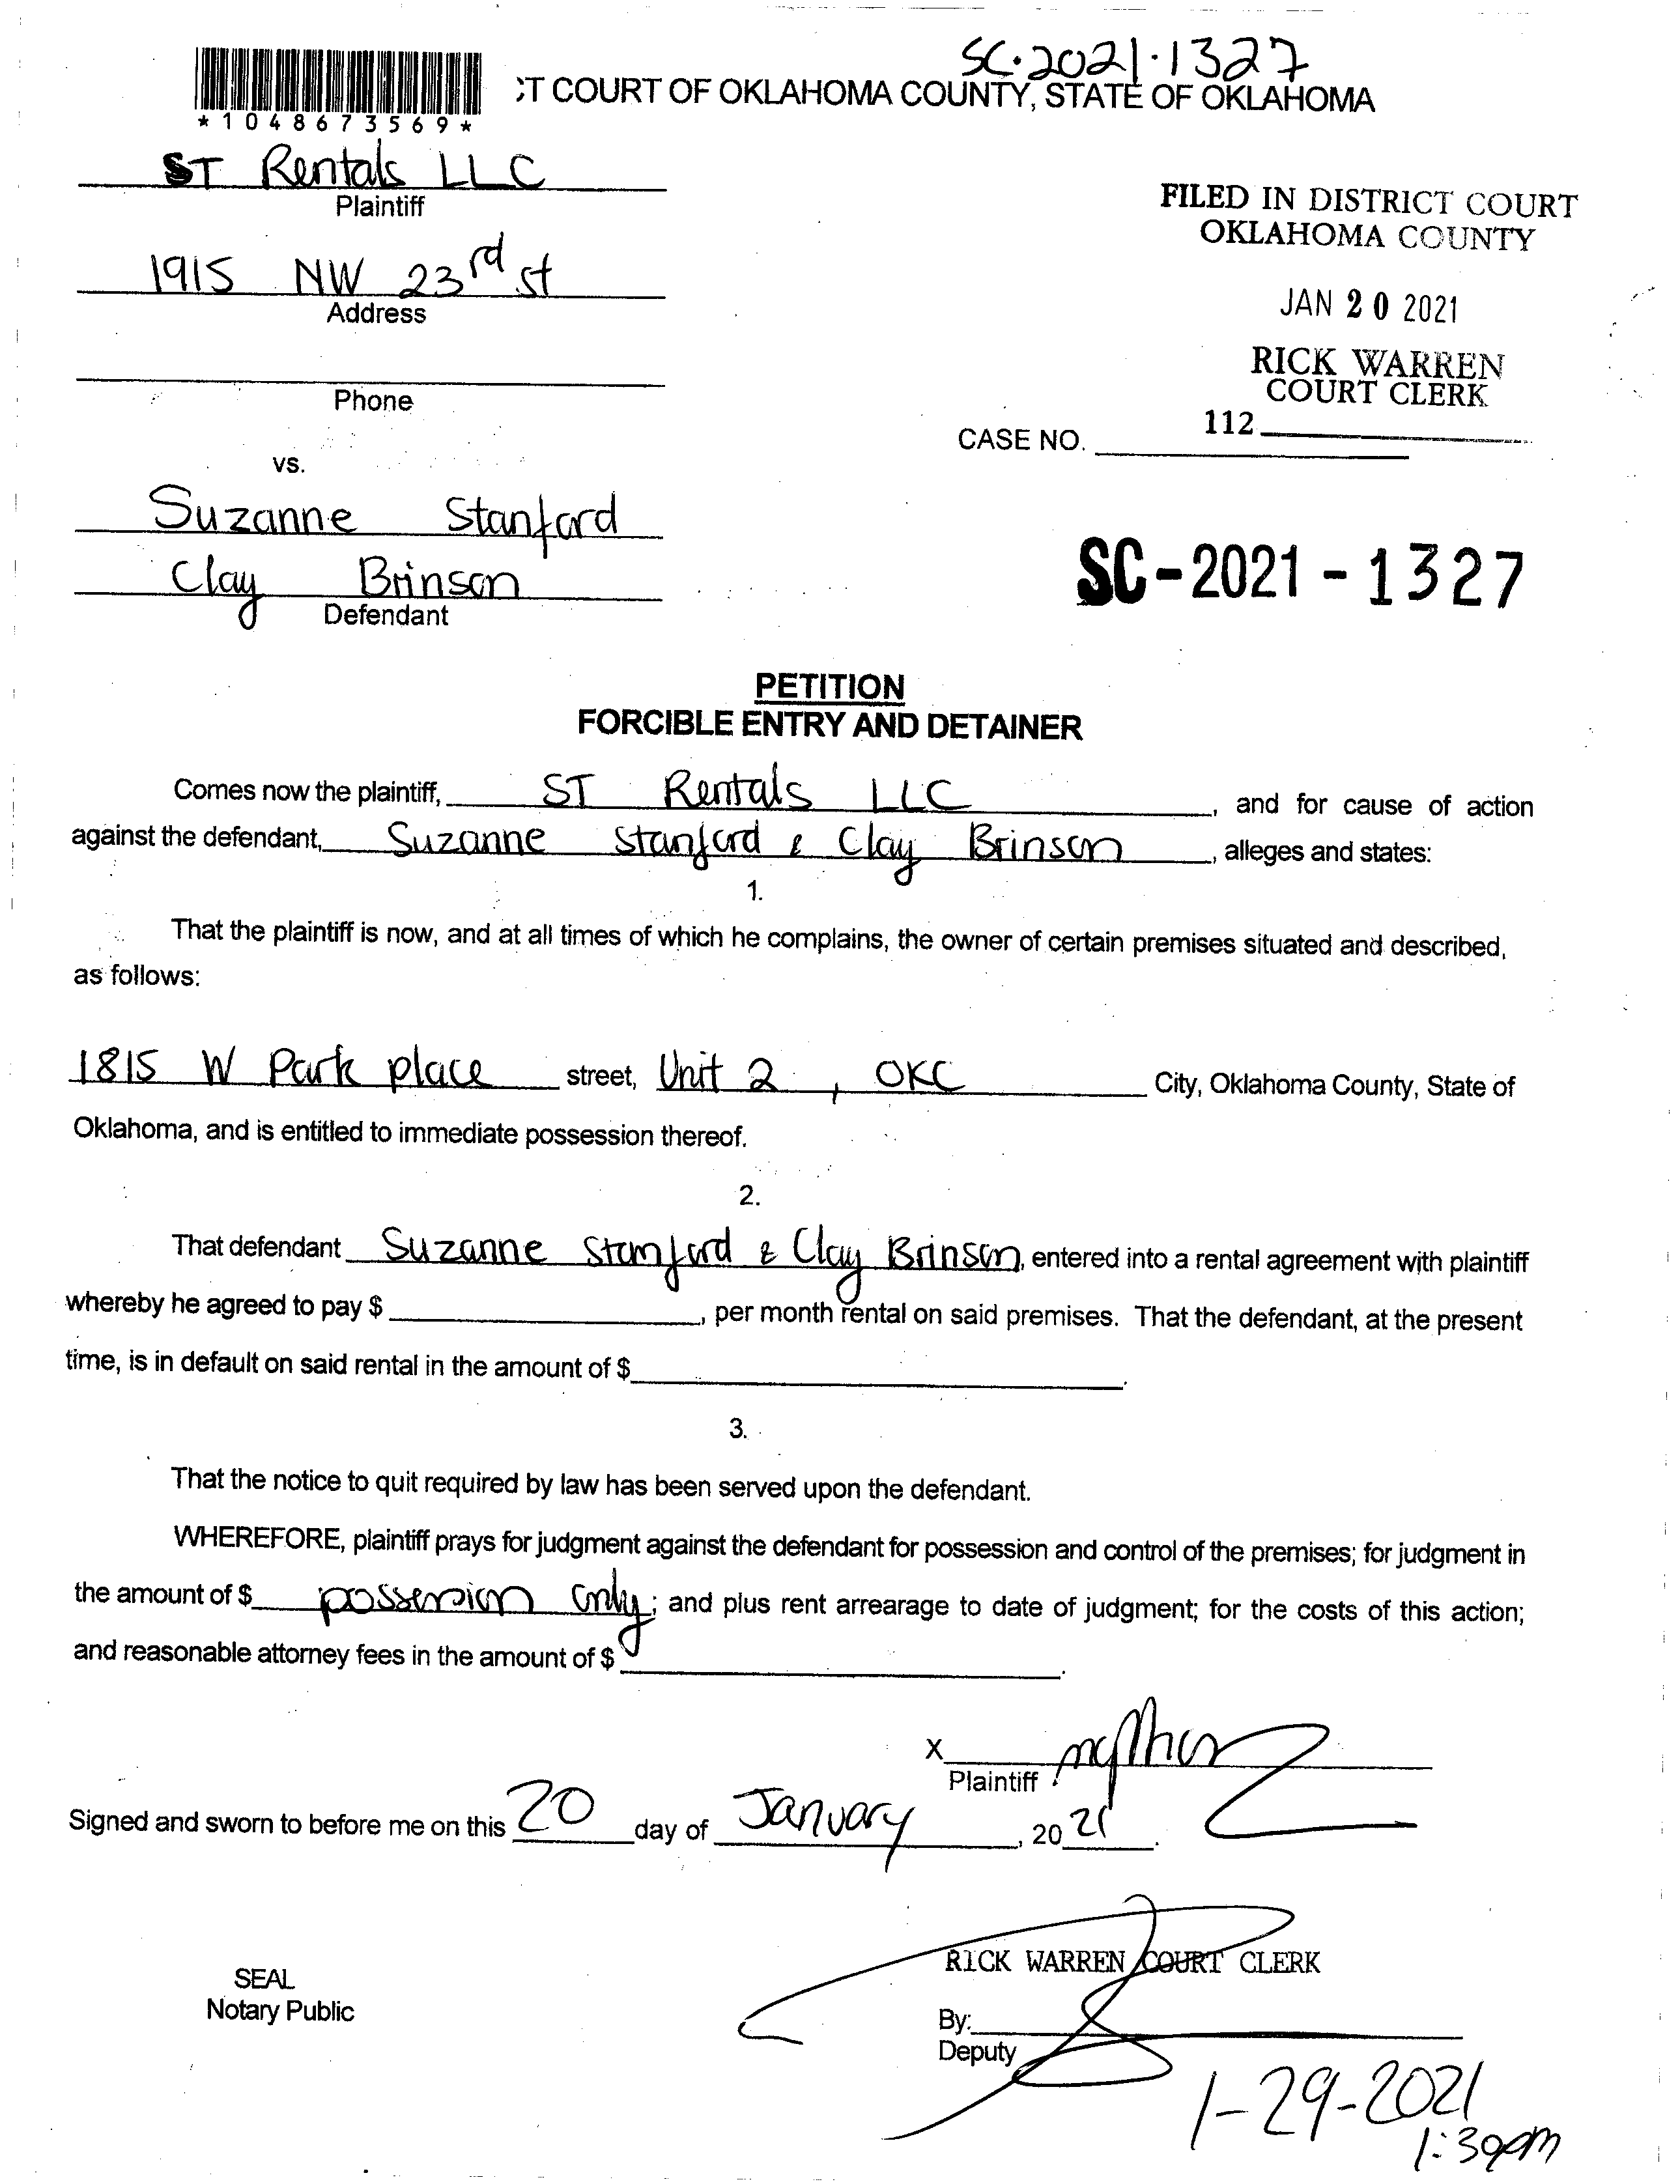 SC-2021-1327
T COURT OF OKLAHOMA COUNTY, STATE OF OKLAHOMA
*1048673569*
ST Rentals LLC
Plaintiff
FILED IN DISTRICT COURT
OKLAHOMA COUNTY
1915 NW 23rd st
Address
JAN 20 2021
RICK WARREN
COURT CLERK
Phone
112
CASE NO.
vs.
Suzanne Stanford
Clay Brinson
Defendant
SC-2021-1327
PETITION
FORCIBLE ENTRY AND DETAINER
Comes now the plaintiff, ST Rentals LLC, and for cause of action
against the defendant, Suzanne Stanford & Clay Brinson, alleges and states:
1.
That the plaintiff is now, and at all times of which he complains, the owner of certain premises situated and described,
as follows:
1815 W Park place street, Unit 2, OKC City, Oklahoma County, State of
Oklahoma, and is entitled to immediate possession thereof.
2.
That defendant Suzanne Stanford & Clay Brinson, entered into a rental agreement with plaintiff
whereby he agreed to pay $ , per month rental on said premises. That the defendant, at the present
time, is in default on said rental in the amount of $ .
3.
That the notice to quit required by law has been served upon the defendant.
WHEREFORE, plaintiff prays for judgment against the defendant for possession and control of the premises; for judgment in
the amount of $ possession only; and plus rent arrearage to date of judgment; for the costs of this action;
and reasonable attorney fees in the amount of $ .
X
Plaintiff
Signed and sworn to before me on this 20 day of January, 2021.
RICK WARREN COURT CLERK
SEAL
Notary Public
By:
Deputy
1-29-2021
1:30pm